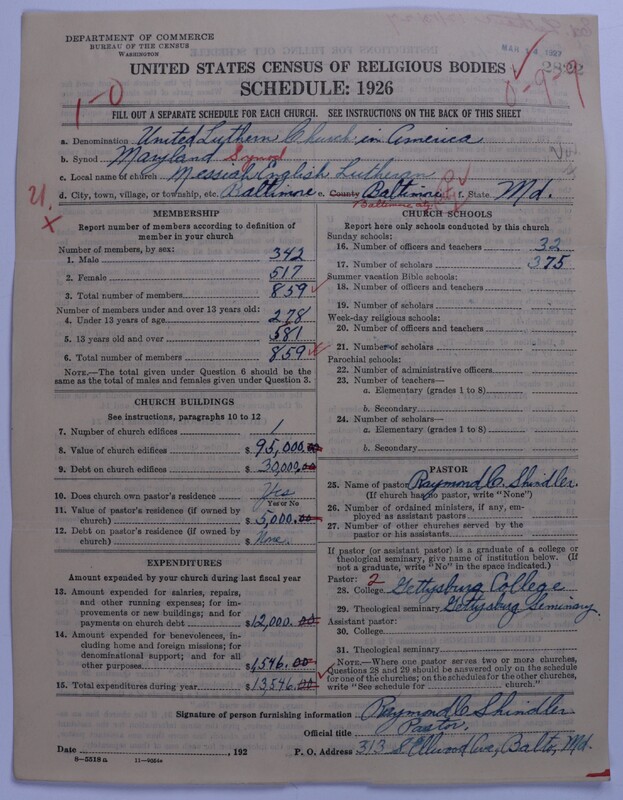 DEPARTMENT OF COMMERCE
BUREAU OF THE CENSUS
WASHINGTON
MAR 14 1927
UNITED STATES CENSUS OF RELIGIOUS BODIES
SCHEDULE: 1926
1-0
0-9-9
FILL OUT A SEPARATE SCHEDULE FOR EACH CHURCH. SEE INSTRUCTIONS ON THE BACK OF THIS SHEET
a. Denomination United Luthern Church in America
b. Synod Maryland Synod
c. Local name of church Messiah English Lutheran
d. City, town, village, or township, etc. Baltimore e. County Baltimore f. State Md.
Baltimore city
MEMBERSHIP
Report number of members according to definition of member in your church
Number of members, by sex:
1. Male 342
2. Female 517
3. Total number of members 859
Number of members under and over 13 years old:
4. Under 13 years of age 278
5. 13 years old and over 581
6. Total number of members 859
NOTE.—The total given under Question 6 should be
same as the total of males and females given under Question 3.
CHURCH BUILDINGS
See instructions, paragraphs 10 to 12
7. Number of church edifices 1
8. Value of church edifices $ 95,000.00
9. Debt on church edifices $ 30,000.00
10. Does church own pastor's residence Yes
Yes or No
11. Value of pastor's residence (if owned by
church) $ 5,000.00
12. Debt on pastor's residence (if owned by
church) $ None.
EXPENDITURES
Amount expended by your church during last fiscal year
13. Amount expended for salaries, repairs,
and other running expenses; for im-
provements or new buildings; and for
payments on church debt $12,000.00
14. Amount expended for benevolences,
including home and foreign missions; for
denominational support; and for all
other purposes $1546.00
15. Total expenditures during year $13,546.00
CHURCH SCHOOLS
Report here only schools conducted by this church
Sunday schools:
16. Number of officers and teachers 32
17. Number of scholars 375
Summer vacation Bible schools:
18. Number of officers and teachers
19. Number of scholars
Week-day religious schools:
20. Number of officers and teachers
21. Number of scholars
Parochial schools:
22. Number of administrative officers
23. Number of teachers—
a. Elementary (grades 1 to 8)
b. Secondary
24. Number of scholars—
a. Elementary (grades 1 to 8)
b. Secondary
PASTOR
25. Name of pastor Raymond C. Shindler.
(If church has no pastor, write "None")
26. Number of ordained ministers, if any, em-
ployed as assistant pastors
27. Number of other churches served by the
pastor or his assistants
If pastor (or assistant pastor) is a graduate of a college or
theological seminary, give name of institution below. (If
not a graduate, write "No" in the space indicated.)
Pastor: 2
28. College Gettysburg College
29. Theological seminary Gettysburg Seminary.
Assistant pastor:
30. College
31. Theological seminary
NOTE.—Where one pastor serves two or more churches,
Questions 28 and 29 should be answered only on the schedule
for one of the churches; on the schedules for the other churches,
write "See schedule for church."
Signature of person furnishing information Raymond C Shindler
Official title Pastor.
Date , 192 P. O. Address 313 S Ellwood Ave, Balto, Md.
8—5518a 11—9054a